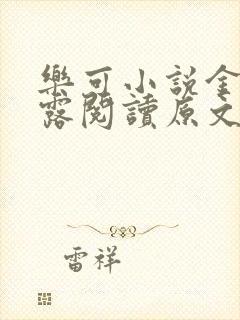 樂可小說金
露閱讀原文
雷祥